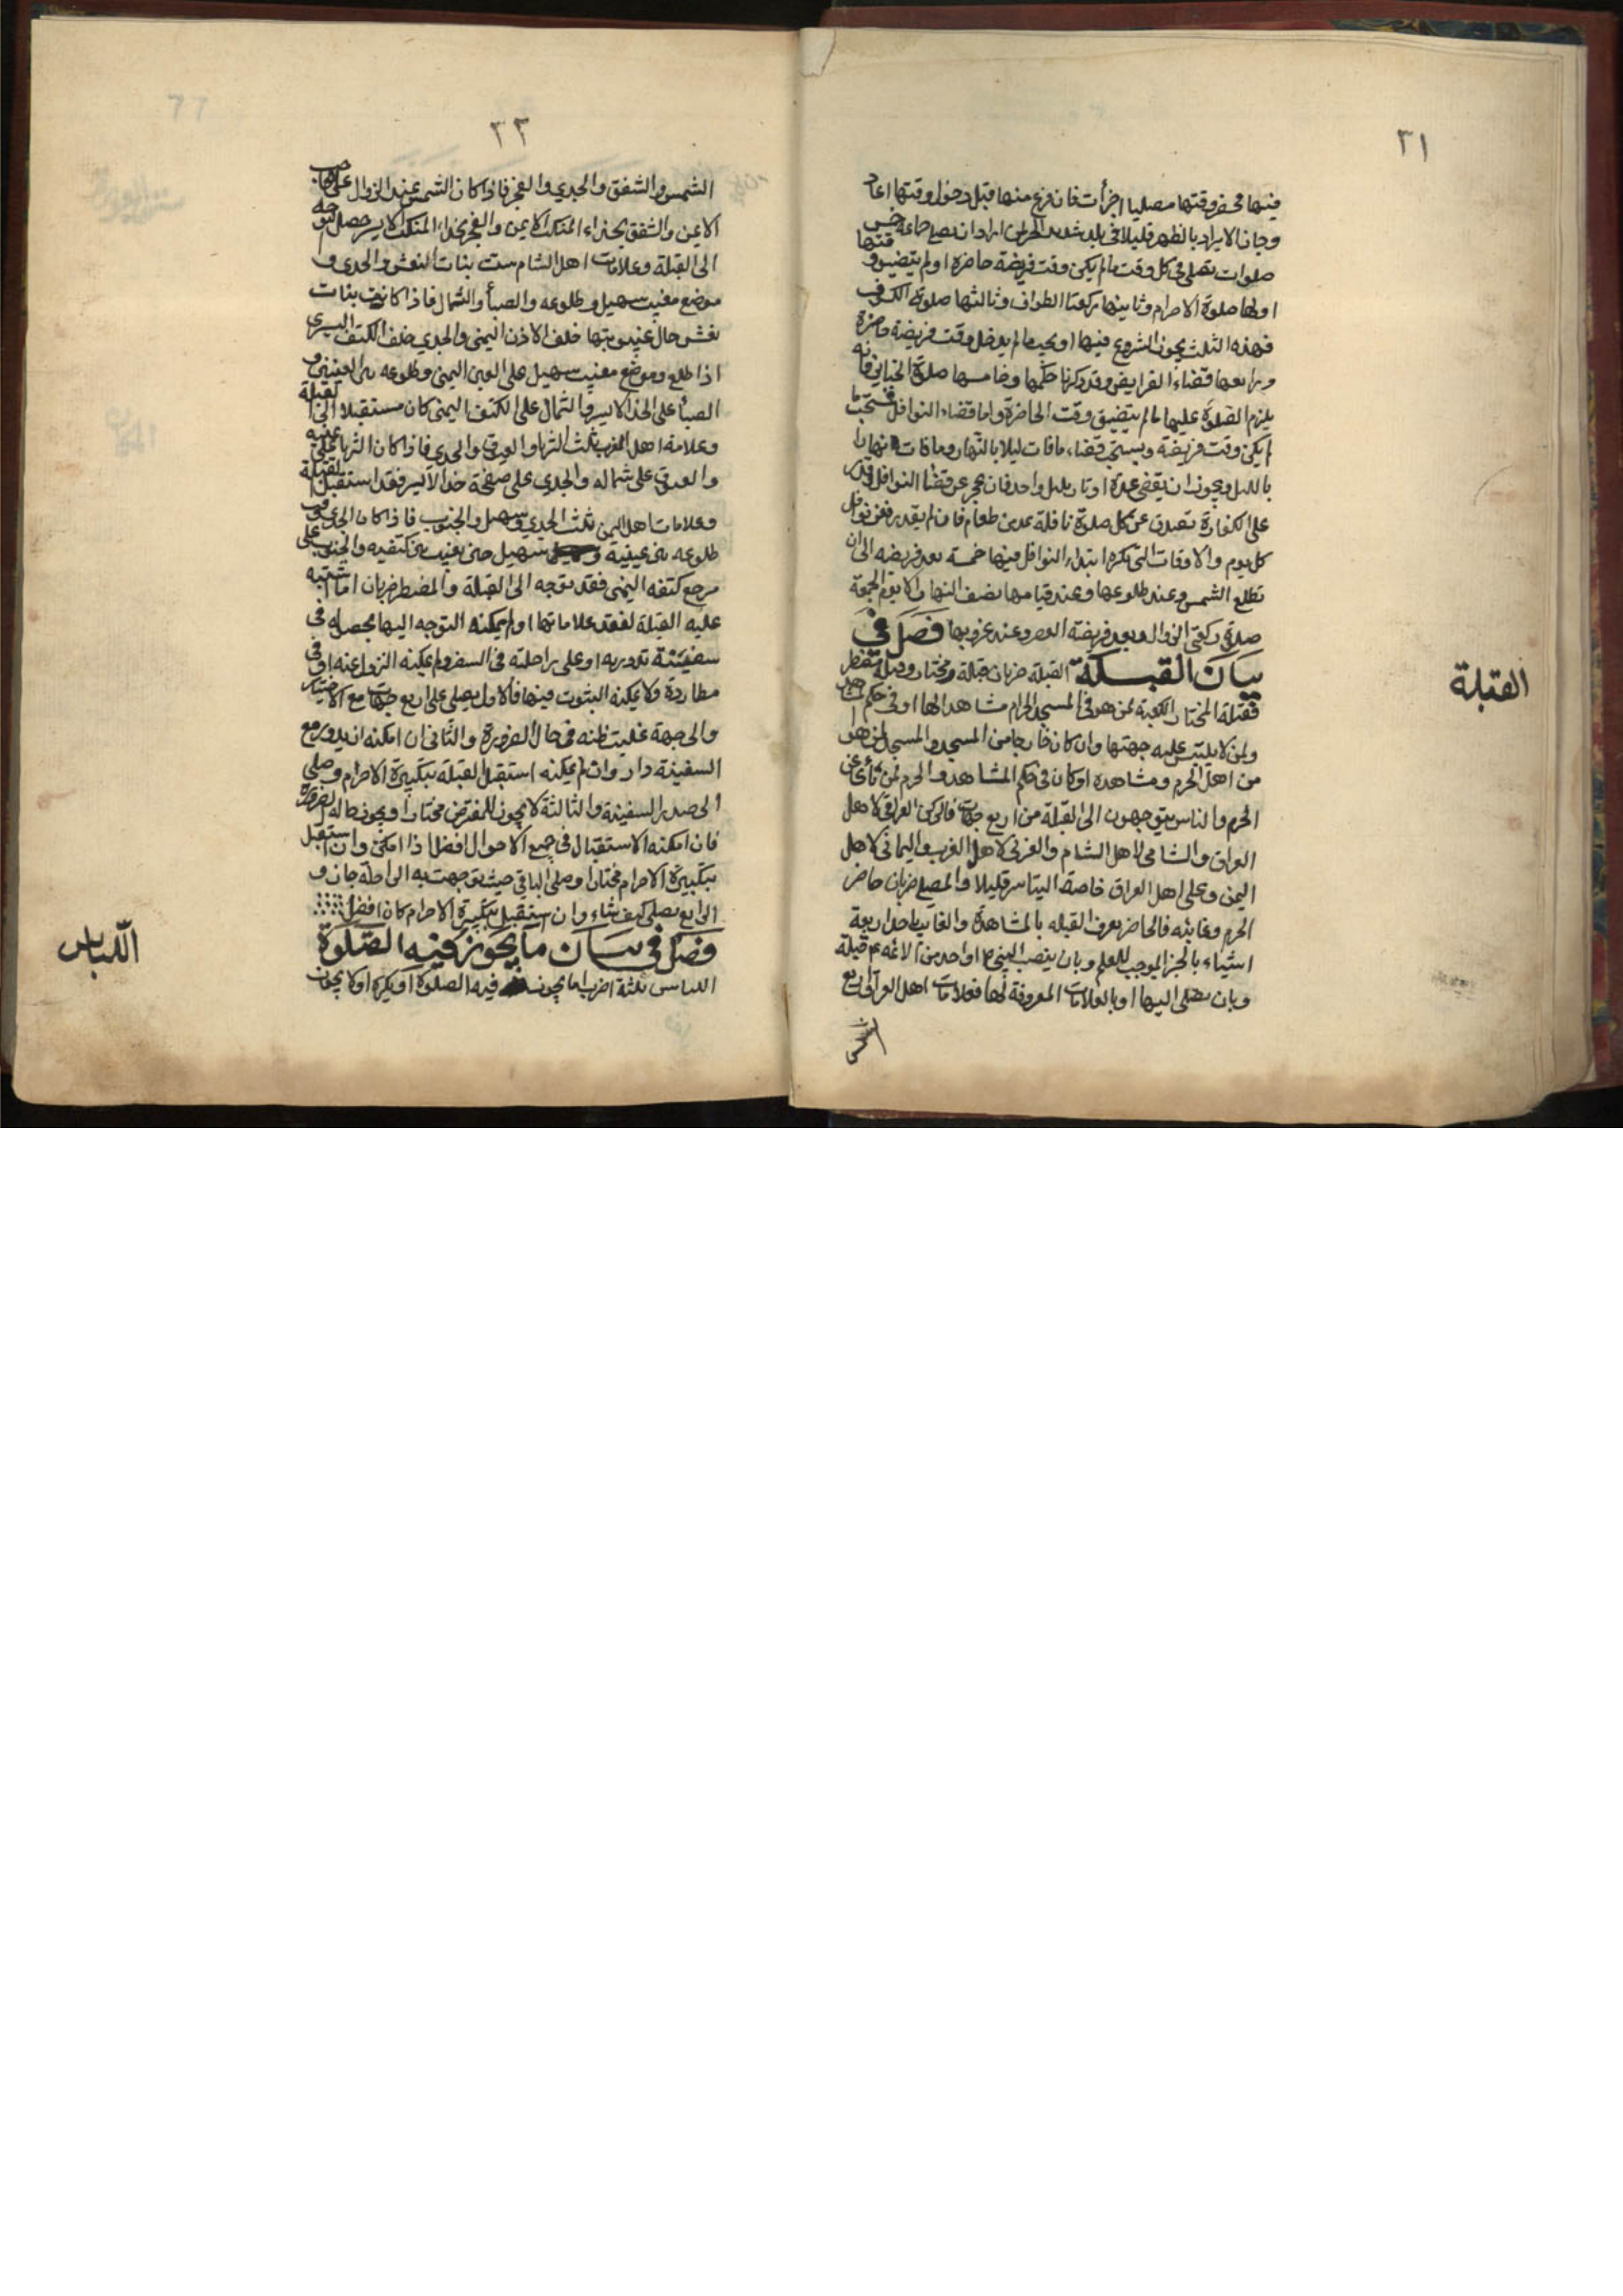 ٣١
فيها فحضر وقتها مصليا اجزأت فان فرغ منها قبل دخول وقتها اعاد
وجاز الابراد بالظهر قليلا في بلد شديد الحر لمن اراد ان يصلي جماعة خمس
صلوات تصلي في كل وقت ما لم يكن وقت فريضة حاضرة او لم يتضيق وقتها
اولها صلوة الاحرام وثانيها ركعتا الطواف وثالثها صلوة الكسوف
فهذه الثلث يجوز الشروع فيها او يجب ما لم يدخل وقت فريضة حاضرة
ورابعها قضاء الفرايض وقد ذكرنا حكمها وخامسها صلوة الجنايز فانه
يلزم الصلوة عليها ما لم يتضيق وقت الحاضرة واما قضاء النوافل فيستحب ما
لم يكن وقت فريضة ويستحب قضاء ما فات ليلا بالنهار وما فات نهارا
بالليل ويجوز ان يقضي عدة اوتار بليل واحد فان عجز عن قضاء النوافل وقدر
على الكفارة تصدق عن كل صلوة نافلة بمد من طعام فان لم يقدر فعن نوافل
كل يوم والاوقات التي يكره ابتداء النوافل فيها خمسة بعد فريضة الى ان
تطلع الشمس وعند طلوعها وعند قيامها نصف النهار الا يوم الجمعة
صلوة ركعتي الزوال وبعد فريضة العصر وعند غروبها فصل في
بيان القبلة القبلة ضربان قبلة مختار وقبلة مضطر
فقبلة المختار الكعبة لمن هو في المسجد الحرام مشاهدا لها او في حكم المشاهد
ولمن لا يلتبس عليه جهتها وان كان خارجا من المسجد والمسجد لمن هو
من اهل الحرم ومشاهده او كان في حكم المشاهد والحرم لمن نأى عن
الحرم والناس يتوجهون الى القبلة من اربع جهات فالركن العراقي لاهل
العراق والشامي لاهل الشام والغربي لاهل الغرب واليماني لاهل
اليمن وعلى اهل العراق خاصة التياسر قليلا والمصلي ضربان حاضر
الحرم وغائبه فالحاضر يعرف القبله بالمشاهدة والغايب باحد اربعة
اشياء بالخبر الموجب للعلم وبان ينصب النبي ص او احد من الائمه ع قبلة
وبان يصلي اليها او بالعلامات المعروفة لها فعلامات اهل العراق اربع
الشمس
القبلة
٣٢
الشمس والشفق والجدي والفجر فاذا كان الشمس عند الزوال على حاجبه
الايمن والشفق بحذاء المنكب الايمن والفجر بحذاء المنكب الايسر حصل التوجه
الى القبلة وعلامات اهل الشام ست بنات النعش والجدي و
موضع مغيب سهيل وطلوعه والصبا والشمال فاذا كانت بنات
نعش حال غيبوبتها خلف الاذن اليمنى والجدي خلف الكتف اليسرى
اذا طلع وموضع مغيب سهيل على العين اليمنى وطلوعه بين العينين و
الصبا على الخد الايسر والشمال على الكتف اليمنى كان مستقبلا الى القبلة
وعلامة اهل المغرب ثلث الثريا والعيوق والجدي فاذا كان الثريا على يمينه
والعيوق على شماله والجدي على صفحة خد الايسر فقد استقبل القبلة
وعلامات اهل اليمن ثلث الجدي وسهيل والجنوب فاذا كان الجدي وقت
طلوعه بين عينيه وسهيل حين يغيب بين كتفيه والجنوب على
مرجع كتفه اليمنى فقد توجه الى القبلة والمضطر ضربان اما اشتبه
عليه القبلة لفقد علاماتها او لم يمكنه التوجه اليها بحصوله في
سفينة تدور به او على راحلته في السفر ولم يمكنه النزول عنه او في
مطاردة ولا يمكنه الثبوت فيها فالاول يصلي على اربع جهات مع الاختيار
والى جهة غلبت ظنه في حال الضرورة والثاني ان امكنه ان يدور مع
السفينة دار وان لم يمكنه استقبل القبلة بتكبيرة الاحرام وصلى
الى صدر السفينة والثالثة لا يجوز للمفترض مختارا ويجوز حاله الضرورة
فان امكنه الاستقبال في جميع الاحوال افضل اذا امكن وان استقبل
بتكبيرة الاحرام مختارا وصلى الباقي حيث توجهت به الراحلة جاز و
الرابع يصلي كيف شاء وان استقبل بتكبيرة الاحرام كان افضل
فصل في بيان ما يجوز فيه الصلوة
اللباس ثلثة اضرب اما يجوز فيه الصلوة او يكره او لا يجوز
اللباس